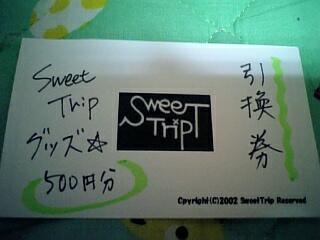 Sweet
Trip
グッズ☆
500円分
SWEET
TRIP
引換券
Cpyright(C)2002 SweetTrip Reserved